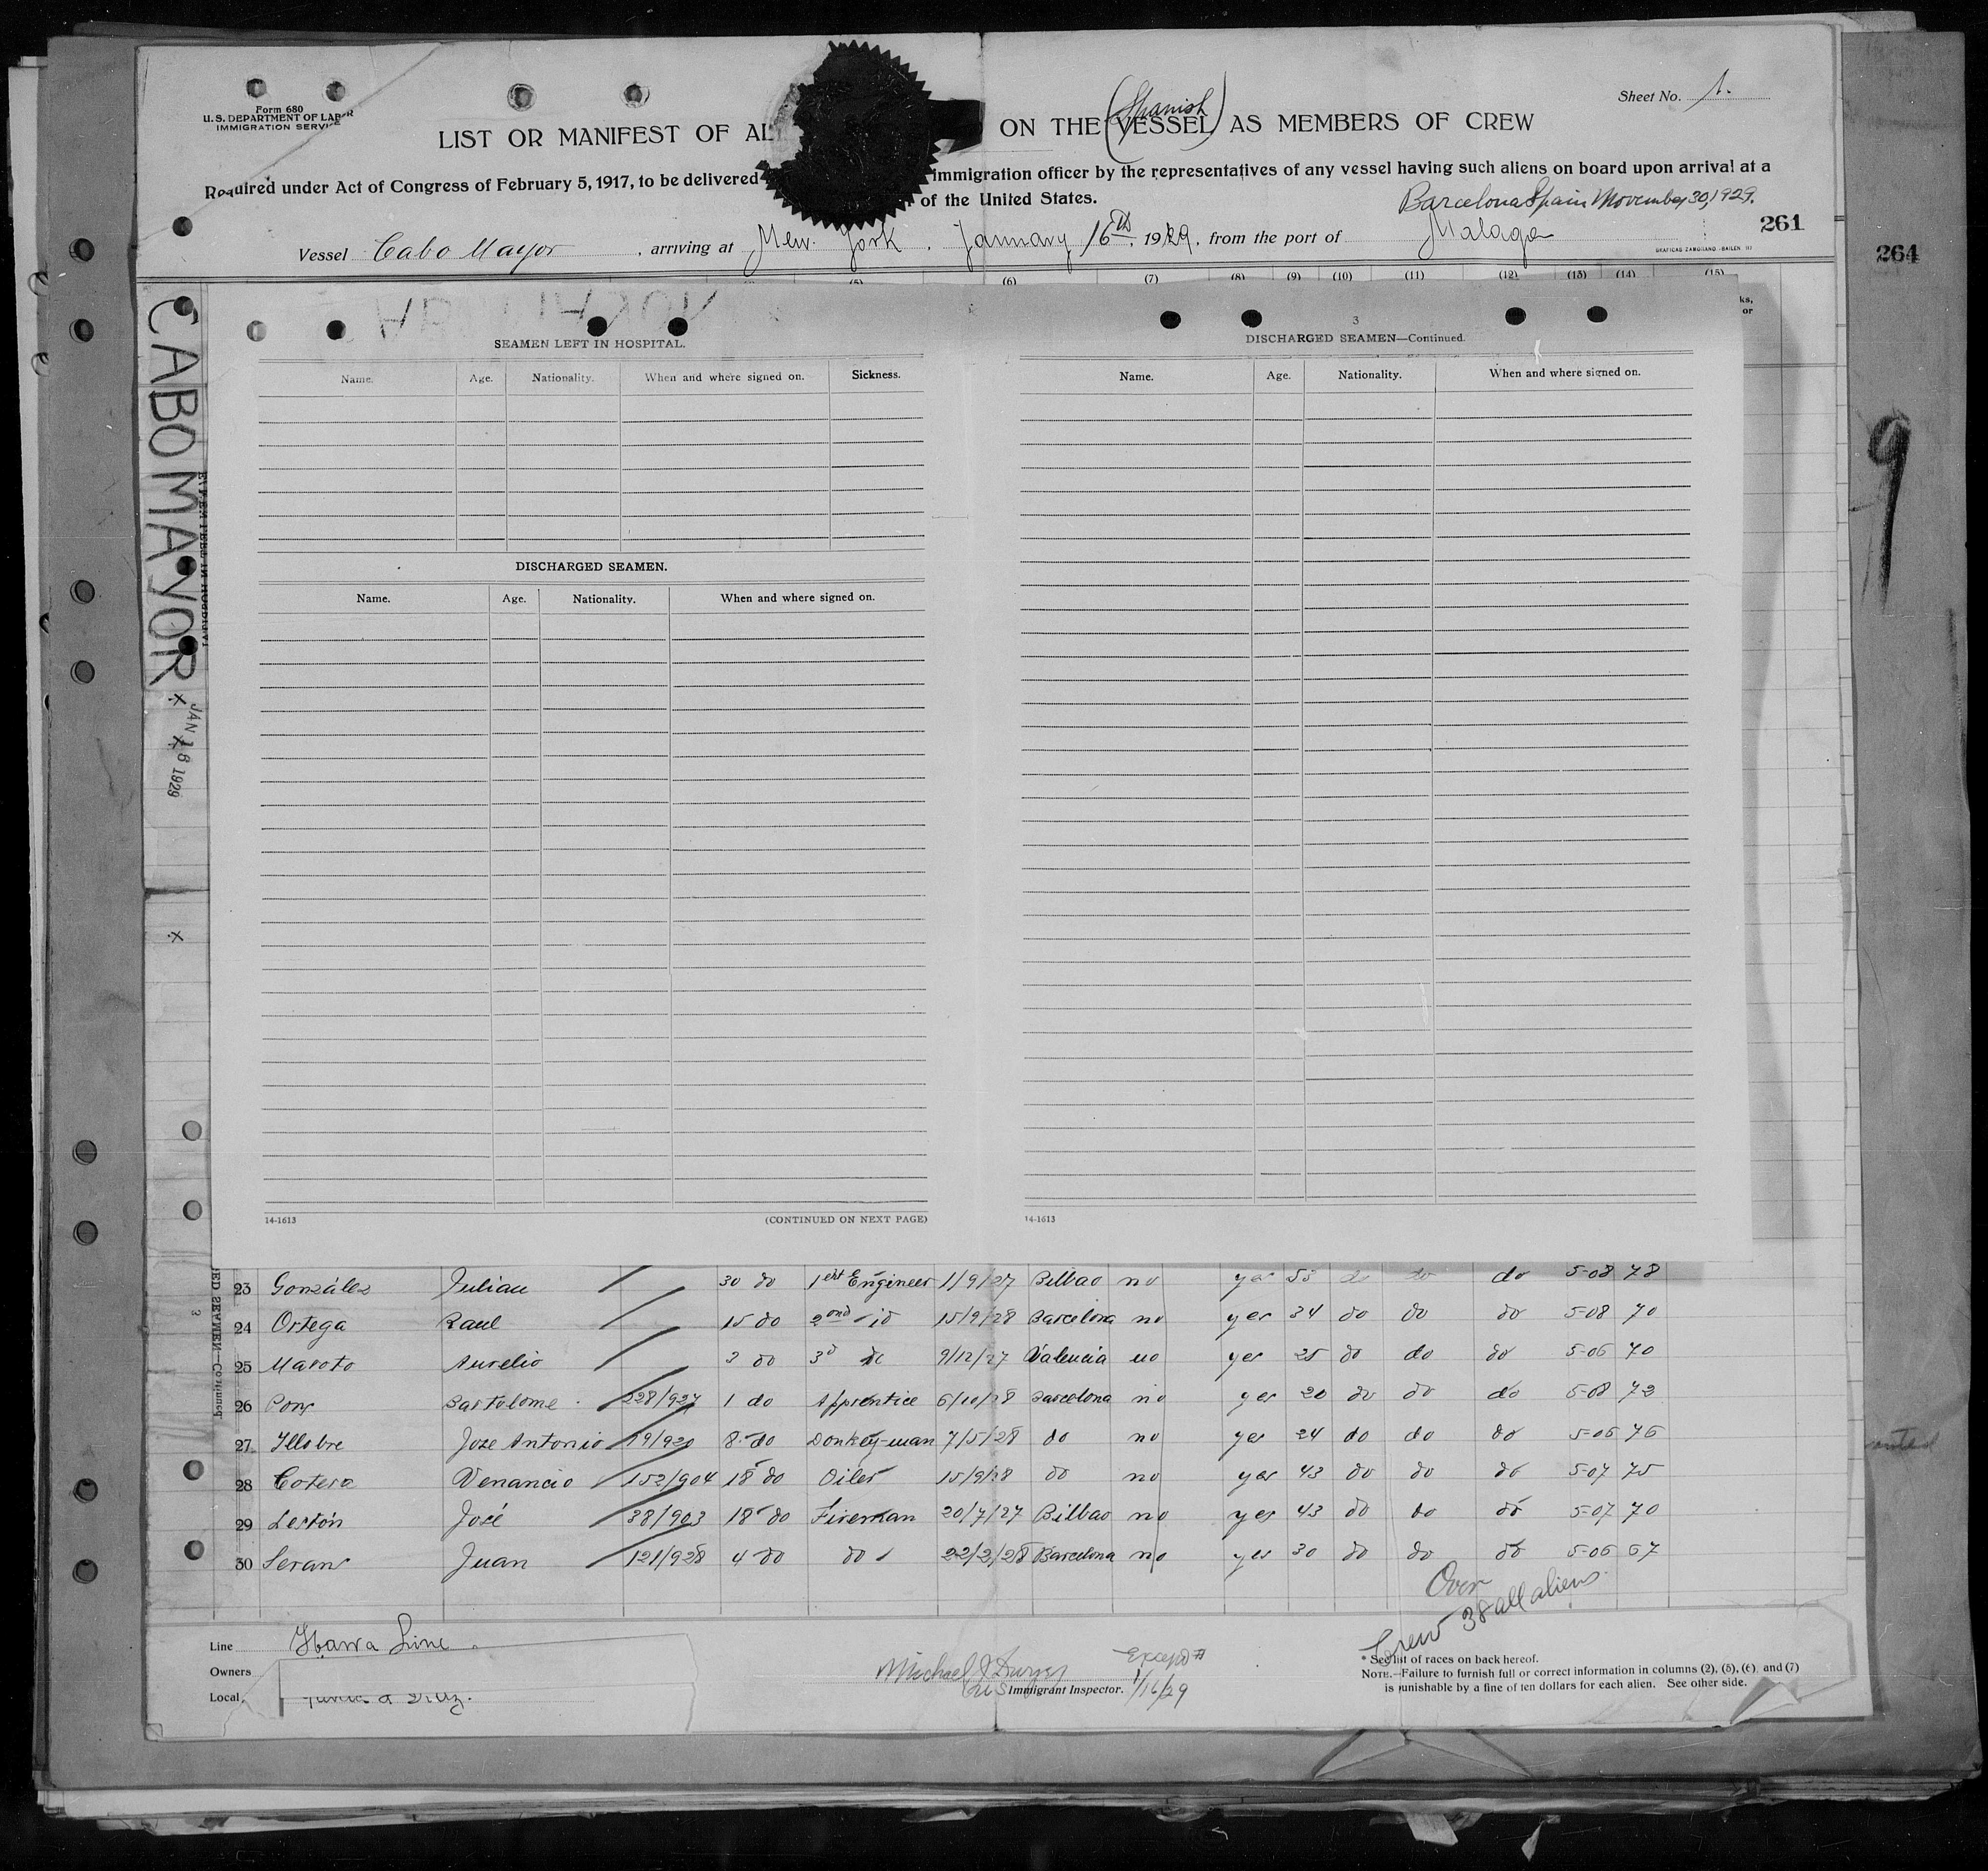 Form 680
U. S. DEPARTMENT OF LABOR
IMMIGRATION SERVICE
Sheet No. 1.
(Spanish)
LIST OR MANIFEST OF AL ON THE VESSEL AS MEMBERS OF CREW
Required under Act of Congress of February 5, 1917, to be delivered immigration officer by the representatives of any vessel having such aliens on board upon arrival at a
of the United States.
Barcelona Spain November 30, 1929.
Vessel Cabo Mayor, arriving at New York, January 16th, 1929, from the port of Malaga
GRAFICAS ZAMBRANO.-BAILÉN
261
264
(6) (7) (8) (9) (10) (11) (12) (13) (14) (15)
ks,
or
CABO MAYOR
JAN 16 1929
9
SEAMEN LEFT IN HOSPITAL.
Name. Age. Nationality. When and where signed on. Sickness.
DISCHARGED SEAMEN.
Name. Age. Nationality. When and where signed on.
14-1613 (CONTINUED ON NEXT PAGE)
3
DISCHARGED SEAMEN—Continued.
Name. Age. Nationality. When and where signed on.
14-1613
23 González Julian 30 do 1st Engineer 1/9/27 Bilbao no yes 55 do do do 5-08 78
24 Ortega Raul 15 do 2nd 15/9/28 Barcelona no yes 34 do do do 5-08 70
25 Maroto Aurelio 3 do 3d do 9/12/27 Valencia no yes 25 do do do 5-06 70
26 Pons Bartolome 228/927 1 do Apprentice 6/10/28 Barcelona no yes 20 do do do 5-08 72
27 Illobre Jose Antonio 19/920 8 do Donkey-man 7/5/28 do no yes 24 do do do 5-06 76
28 Cotero Venancio 152/904 18 do Oiler 15/9/28 do no yes 43 do do do 5-07 75
29 Lestón José 38/903 18 do Fireman 20/7/27 Bilbao no yes 43 do do do 5-07 70
30 Juan 121/928 4 do do 22/2/28 Barcelona no yes 30 do do do 5-06 67
Over
Crew 38 all aliens.
Line Ybarra Line
Owners
Local
Michael J Dwyer
US Immigrant Inspector. 1/16/29
* See list of races on back hereof.
NOTE.—Failure to furnish full or correct information in columns (2), (5), (6) and (7)
is punishable by a fine of ten dollars for each alien. See other side.